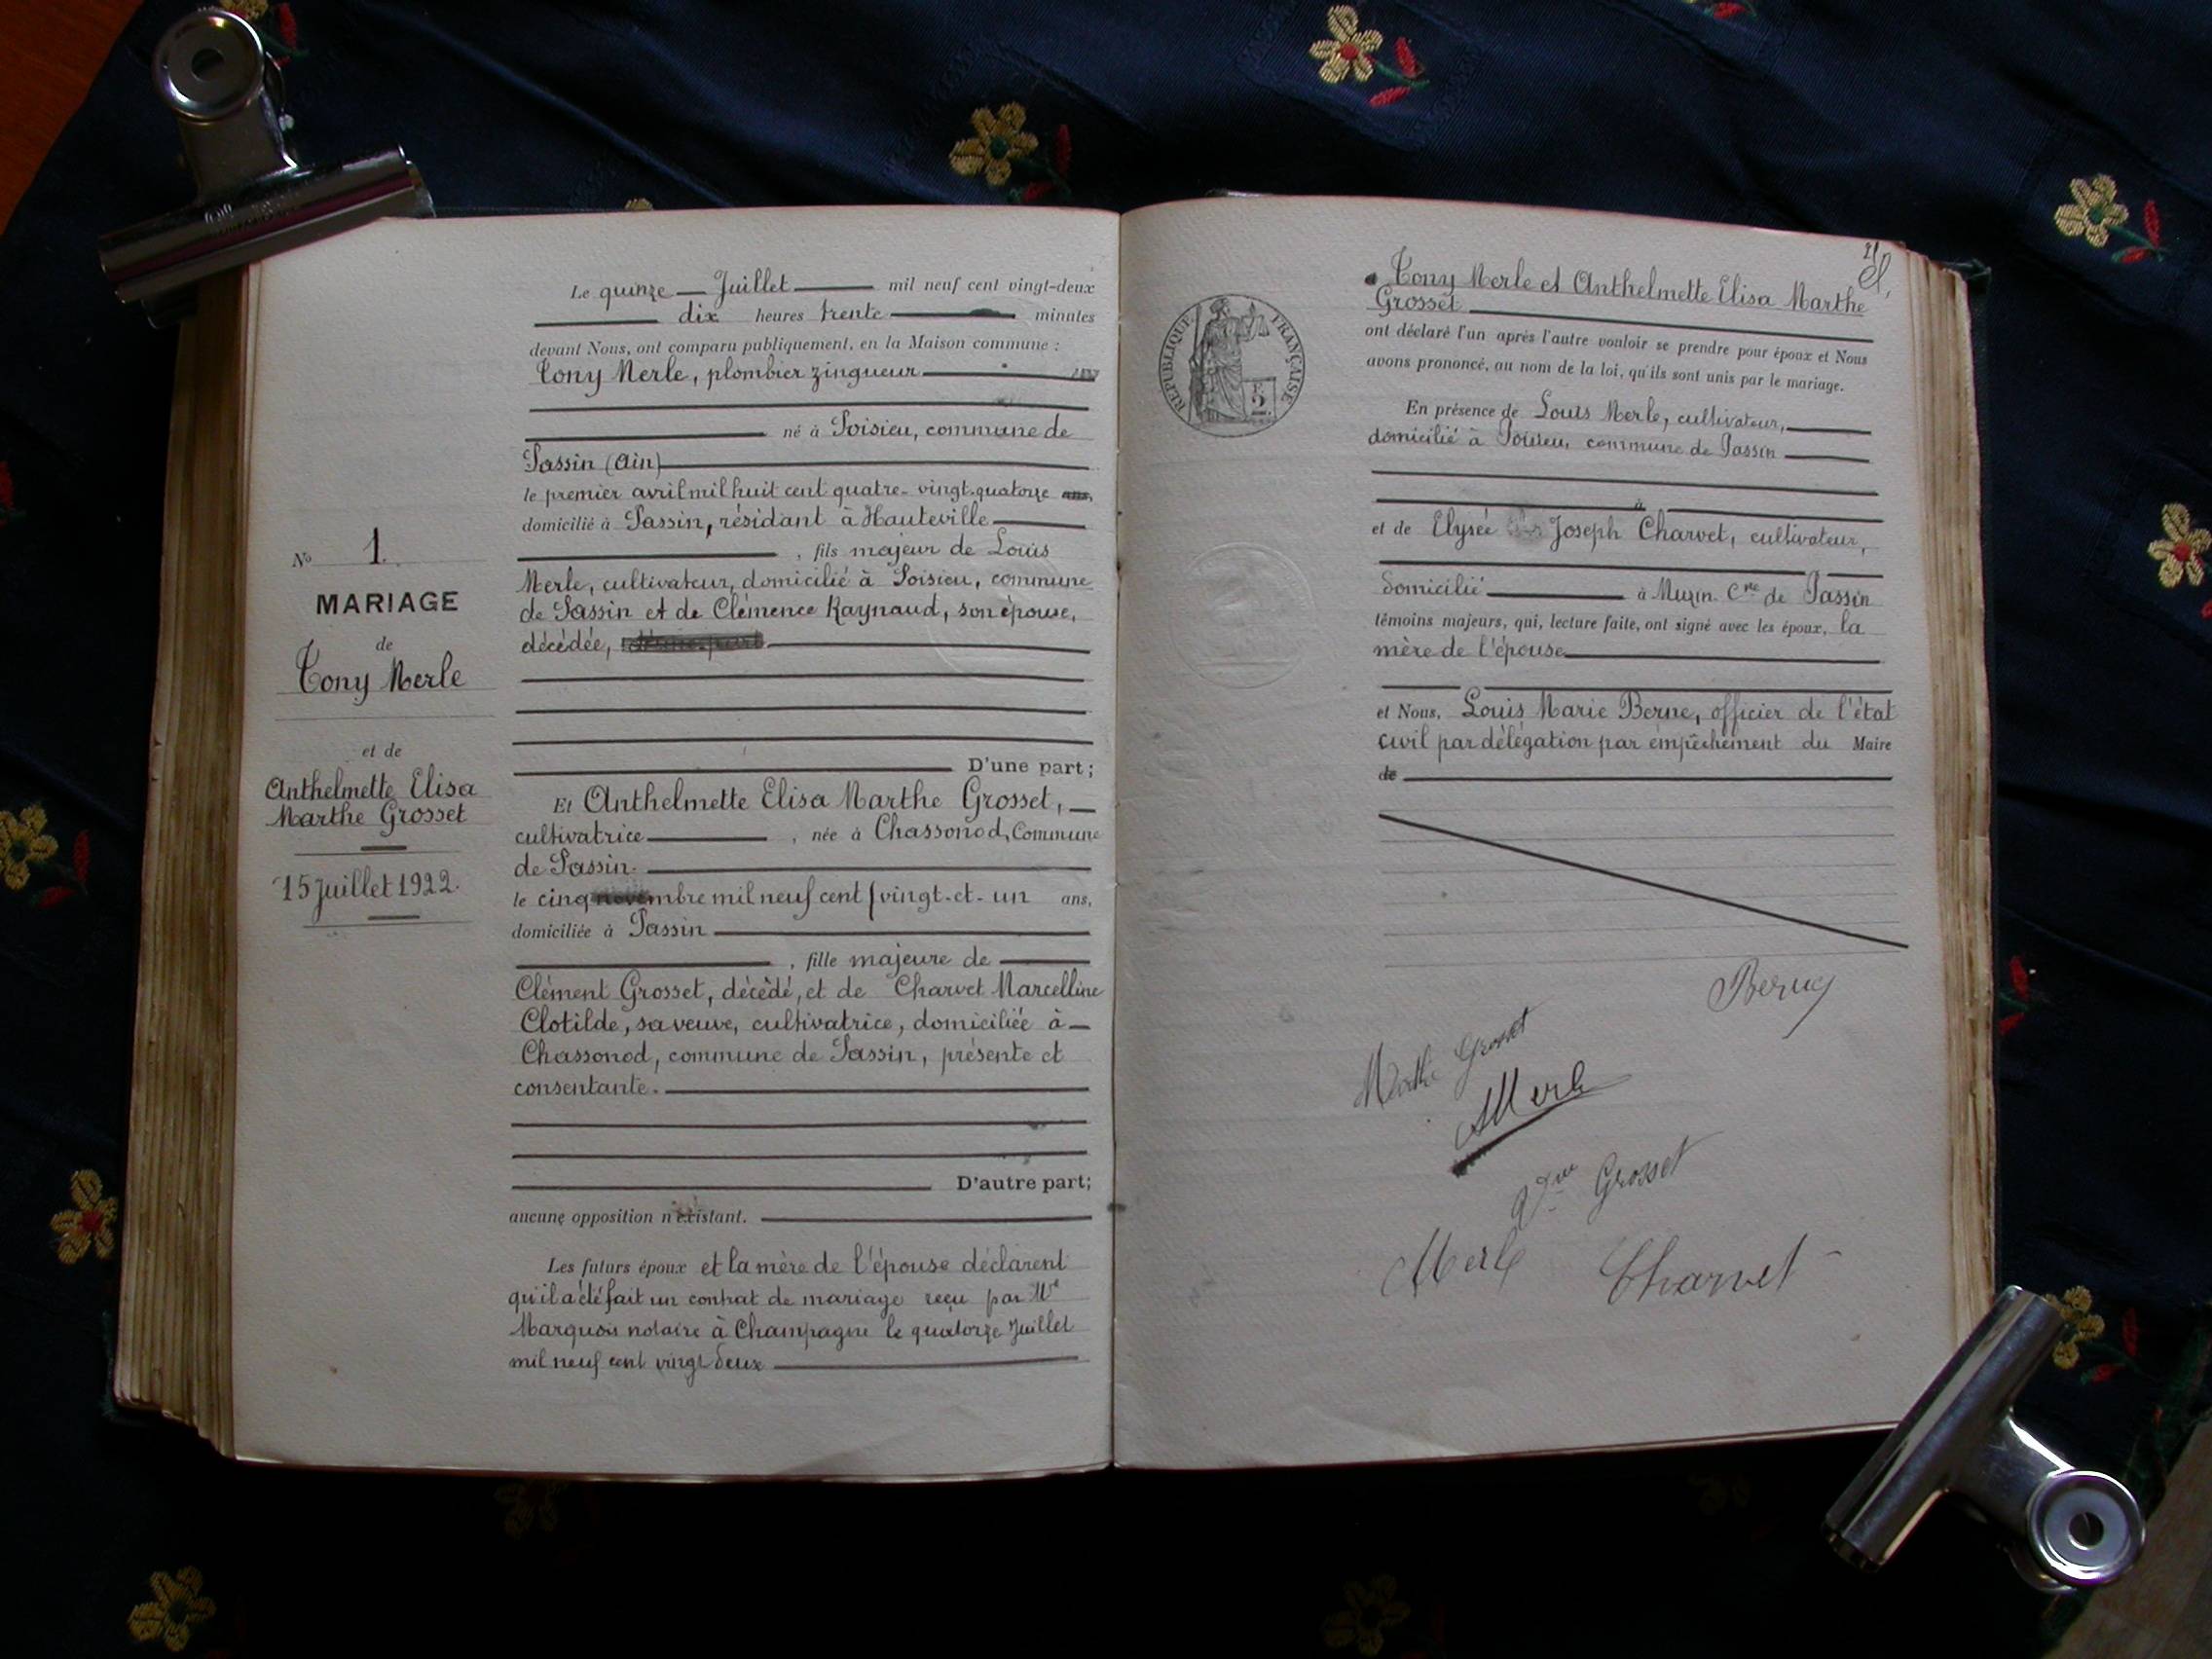 Le quinze Juillet mil neuf cent vingt-deux
dix heures trente minutes
devant Nous, ont comparu publiquement, en la Maison commune :
Tony Merle, plombier zingueur
né à Poisieu, commune de
Passin (Ain)
le premier avril mil huit cent quatre-vingt-quatorze ans,
domicilié à Passin, résidant à Hauteville
, fils majeur de Louis
Merle, cultivateur, domicilié à Poisieu, commune
de Passin et de Clémence Raynaud, son épouse,
décédée,
D'une part;
No 1.
MARIAGE
de
Tony Merle
et de
Anthelmette Elisa
Marthe Grosset
15 Juillet 1922.
Et Anthelmette Elisa Marthe Grosset,
cultivatrice , née à Chassonod, Commune
de Passin.
le cinq novembre mil neuf cent vingt-et-un ans,
domiciliée à Passin
, fille majeure de
Clément Grosset, décédé, et de Charvet Marcelline
Clotilde, sa veuve, cultivatrice, domiciliée à
Chassonod, commune de Passin, présente et
consentante.
D'autre part;
aucune opposition n'existant.
Les futurs époux et la mère de l'épouse déclarent
qu'il a été fait un contrat de mariage reçu par Me
notaire à Champagne le quatorze Juillet
mil neuf cent vingt deux
Tony Merle et Anthelmette Elisa Marthe
Grosset
ont déclaré l'un après l'autre vouloir se prendre pour époux et Nous
avons prononcé, au nom de la loi, qu'ils sont unis par le mariage.
En présence de Louis Merle, cultivateur,
domicilié à Poisieu, commune de Passin
à
et de Elysée Joseph Charvet, cultivateur,
domicilié à Muzin. Cne de Passin
témoins majeurs, qui, lecture faite, ont signé avec les époux, la
mère de l'épouse
et Nous, Louis Marie Berne, officier de l'état
civil par délégation par empêchement du Maire
de
REPUBLIQUE FRANÇAISE
F. 5
Berne
Marthe Grosset
Merle
Vve Grosset
Merle Charvet